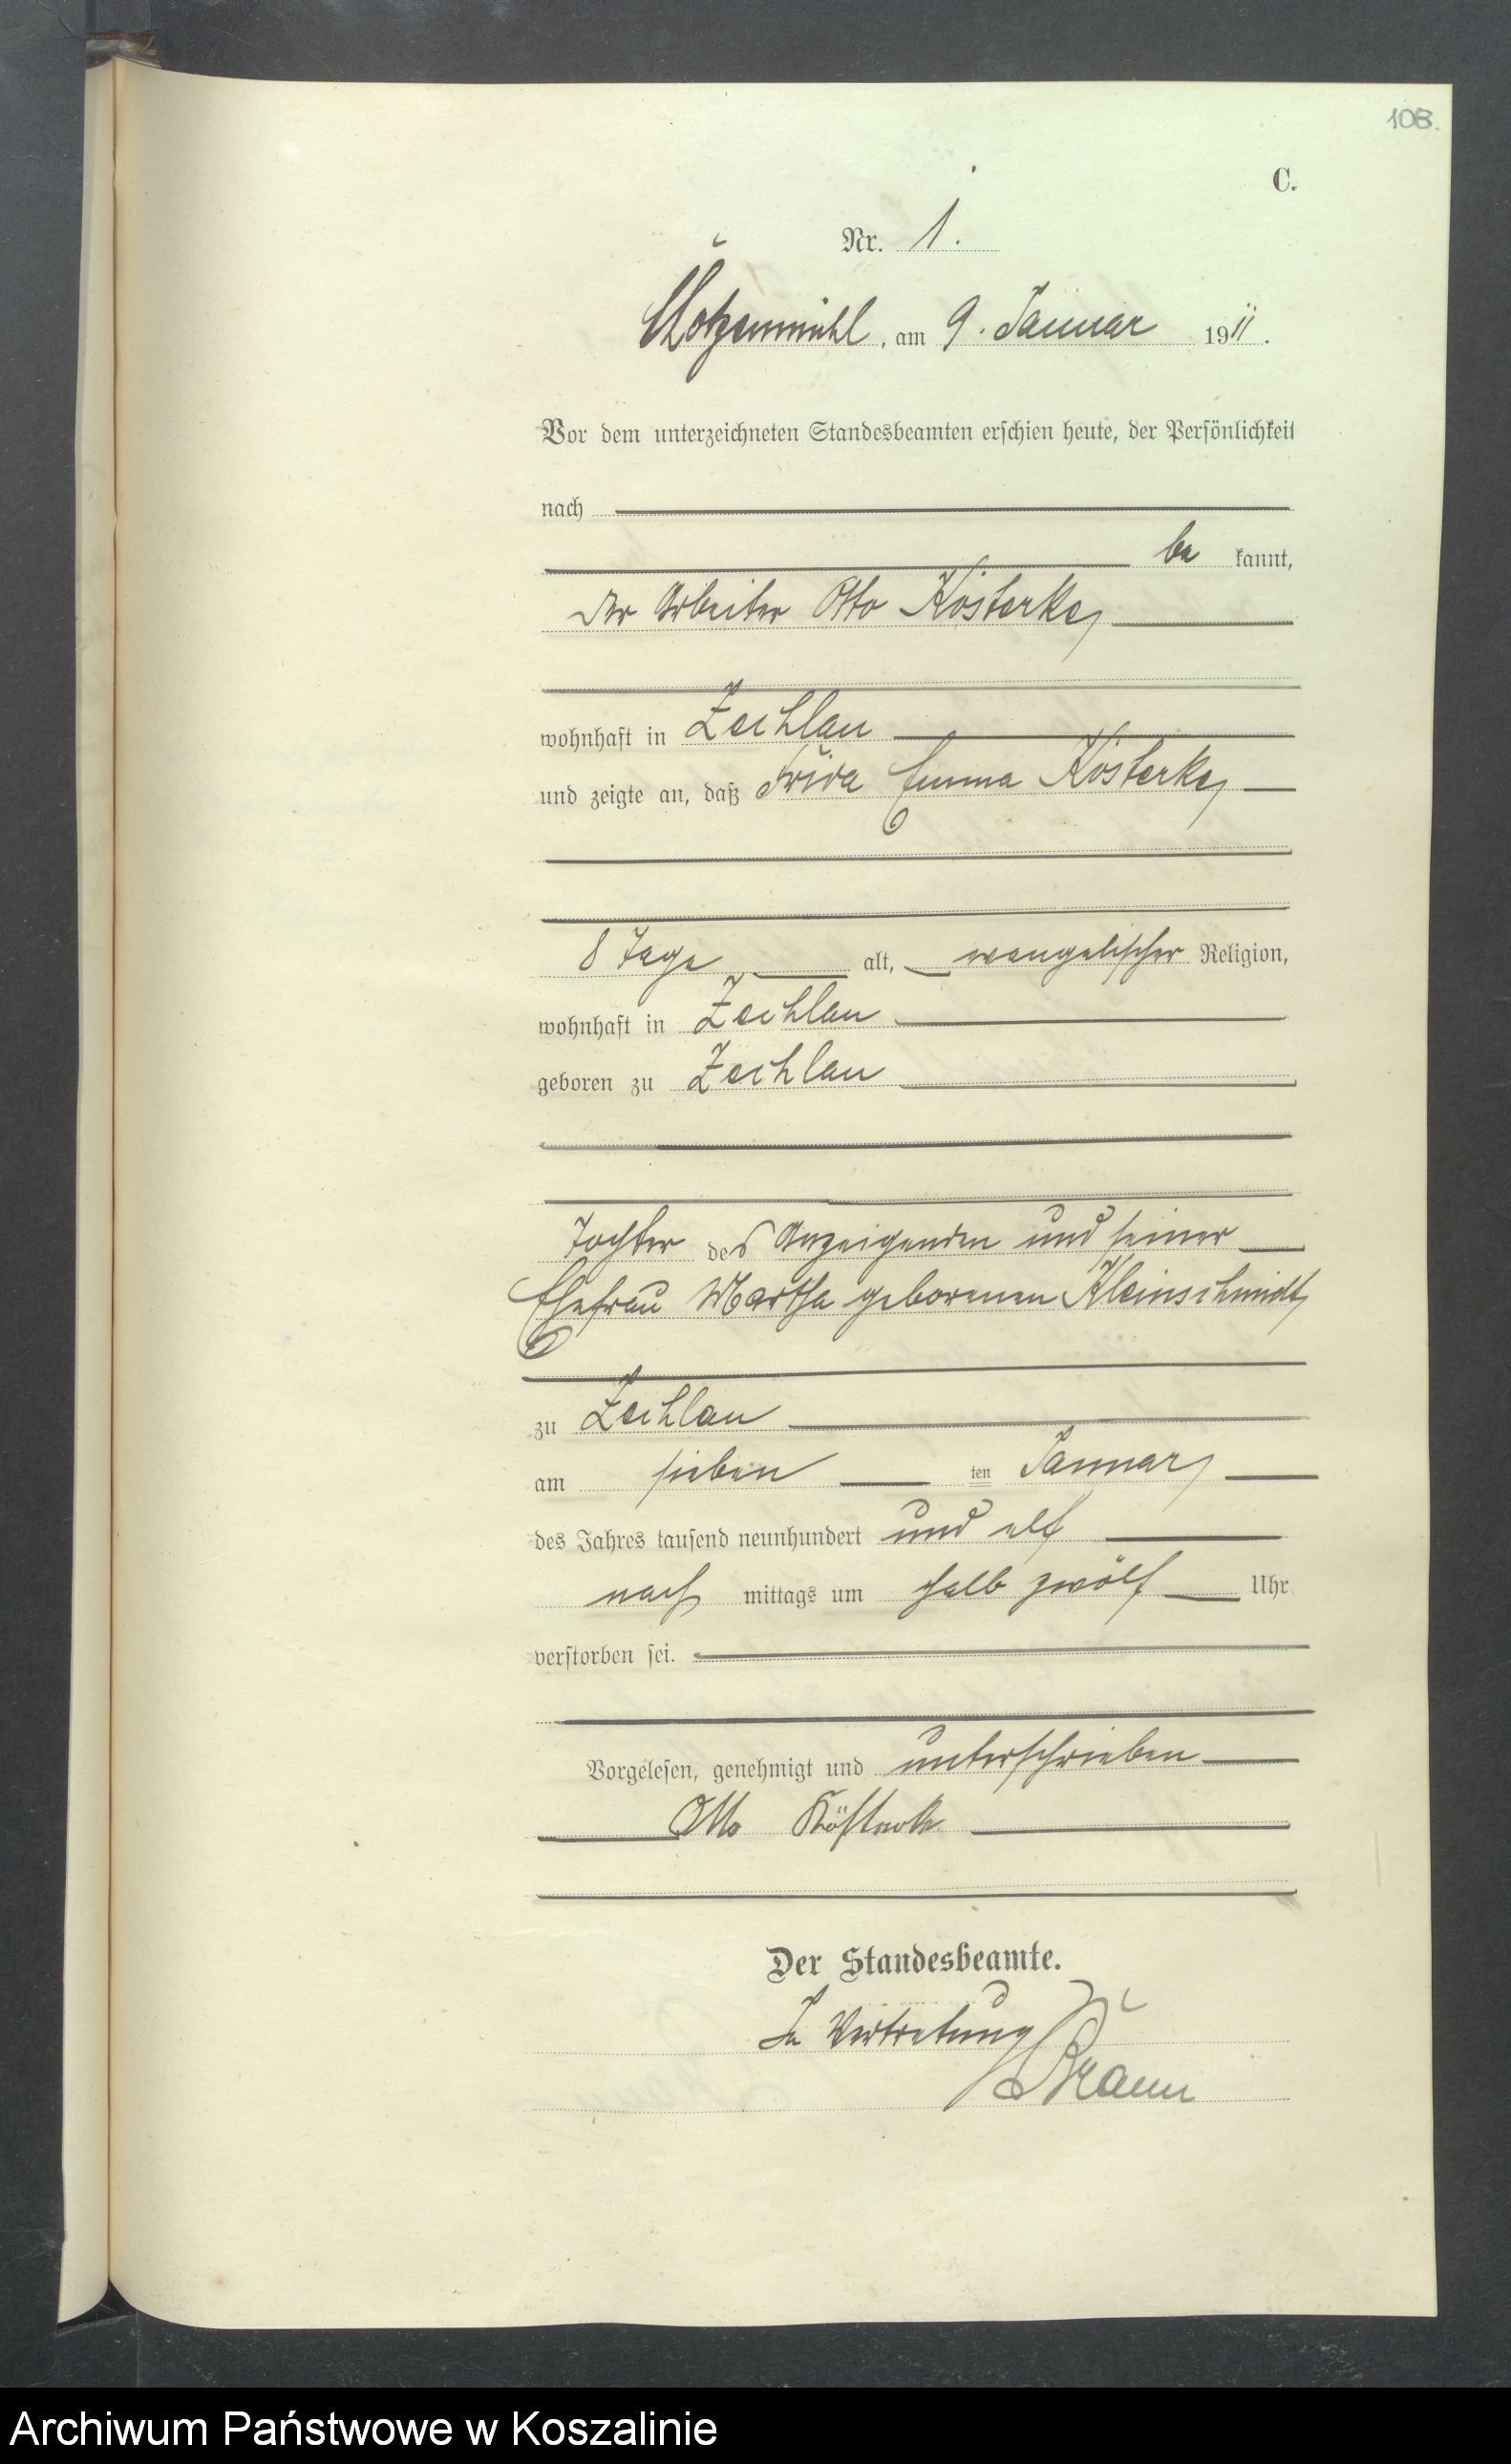 108.
C.
Nr. 1.
Klotzenmühl, am 9. Januar 1911.
Vor dem unterzeichneten Standesbeamten erschien heute, der Persönlichkeit
nach
be kannt,
der Arbeiter Otto Kösterke,
wohnhaft in Zechlau
und zeigte an, daß Frida Emma Kösterke,
8 Tage alt, evangelischer Religion,
wohnhaft in Zechlau
geboren zu Zechlau
Tochter des Anzeigenden und seiner
Ehefrau Martha geborenen Kleinschmidt,
zu Zechlau
am sieben ten Januar,
des Jahres tausend neunhundert und elf
nach mittags um halb zwölf Uhr
verstorben sei.
Vorgelesen, genehmigt und unterschrieben
Otto Kösterke
Der Standesbeamte.
In Vertretung
Braun
Archiwum Państwowe w Koszalinie